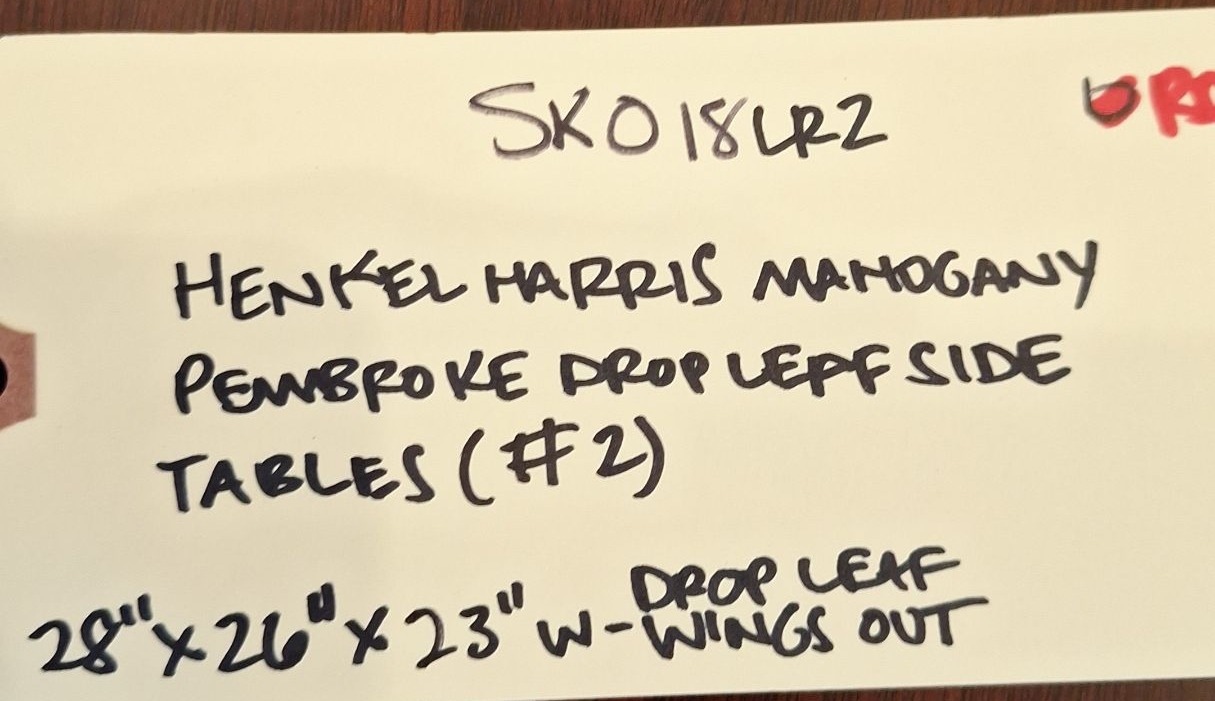 SK018LR2
HENKEL HARRIS MAHOGANY
PEMBROKE DROP LEAF SIDE
TABLES (#2)
28" x 26" x 23" W - DROP LEAF
WINGS OUT